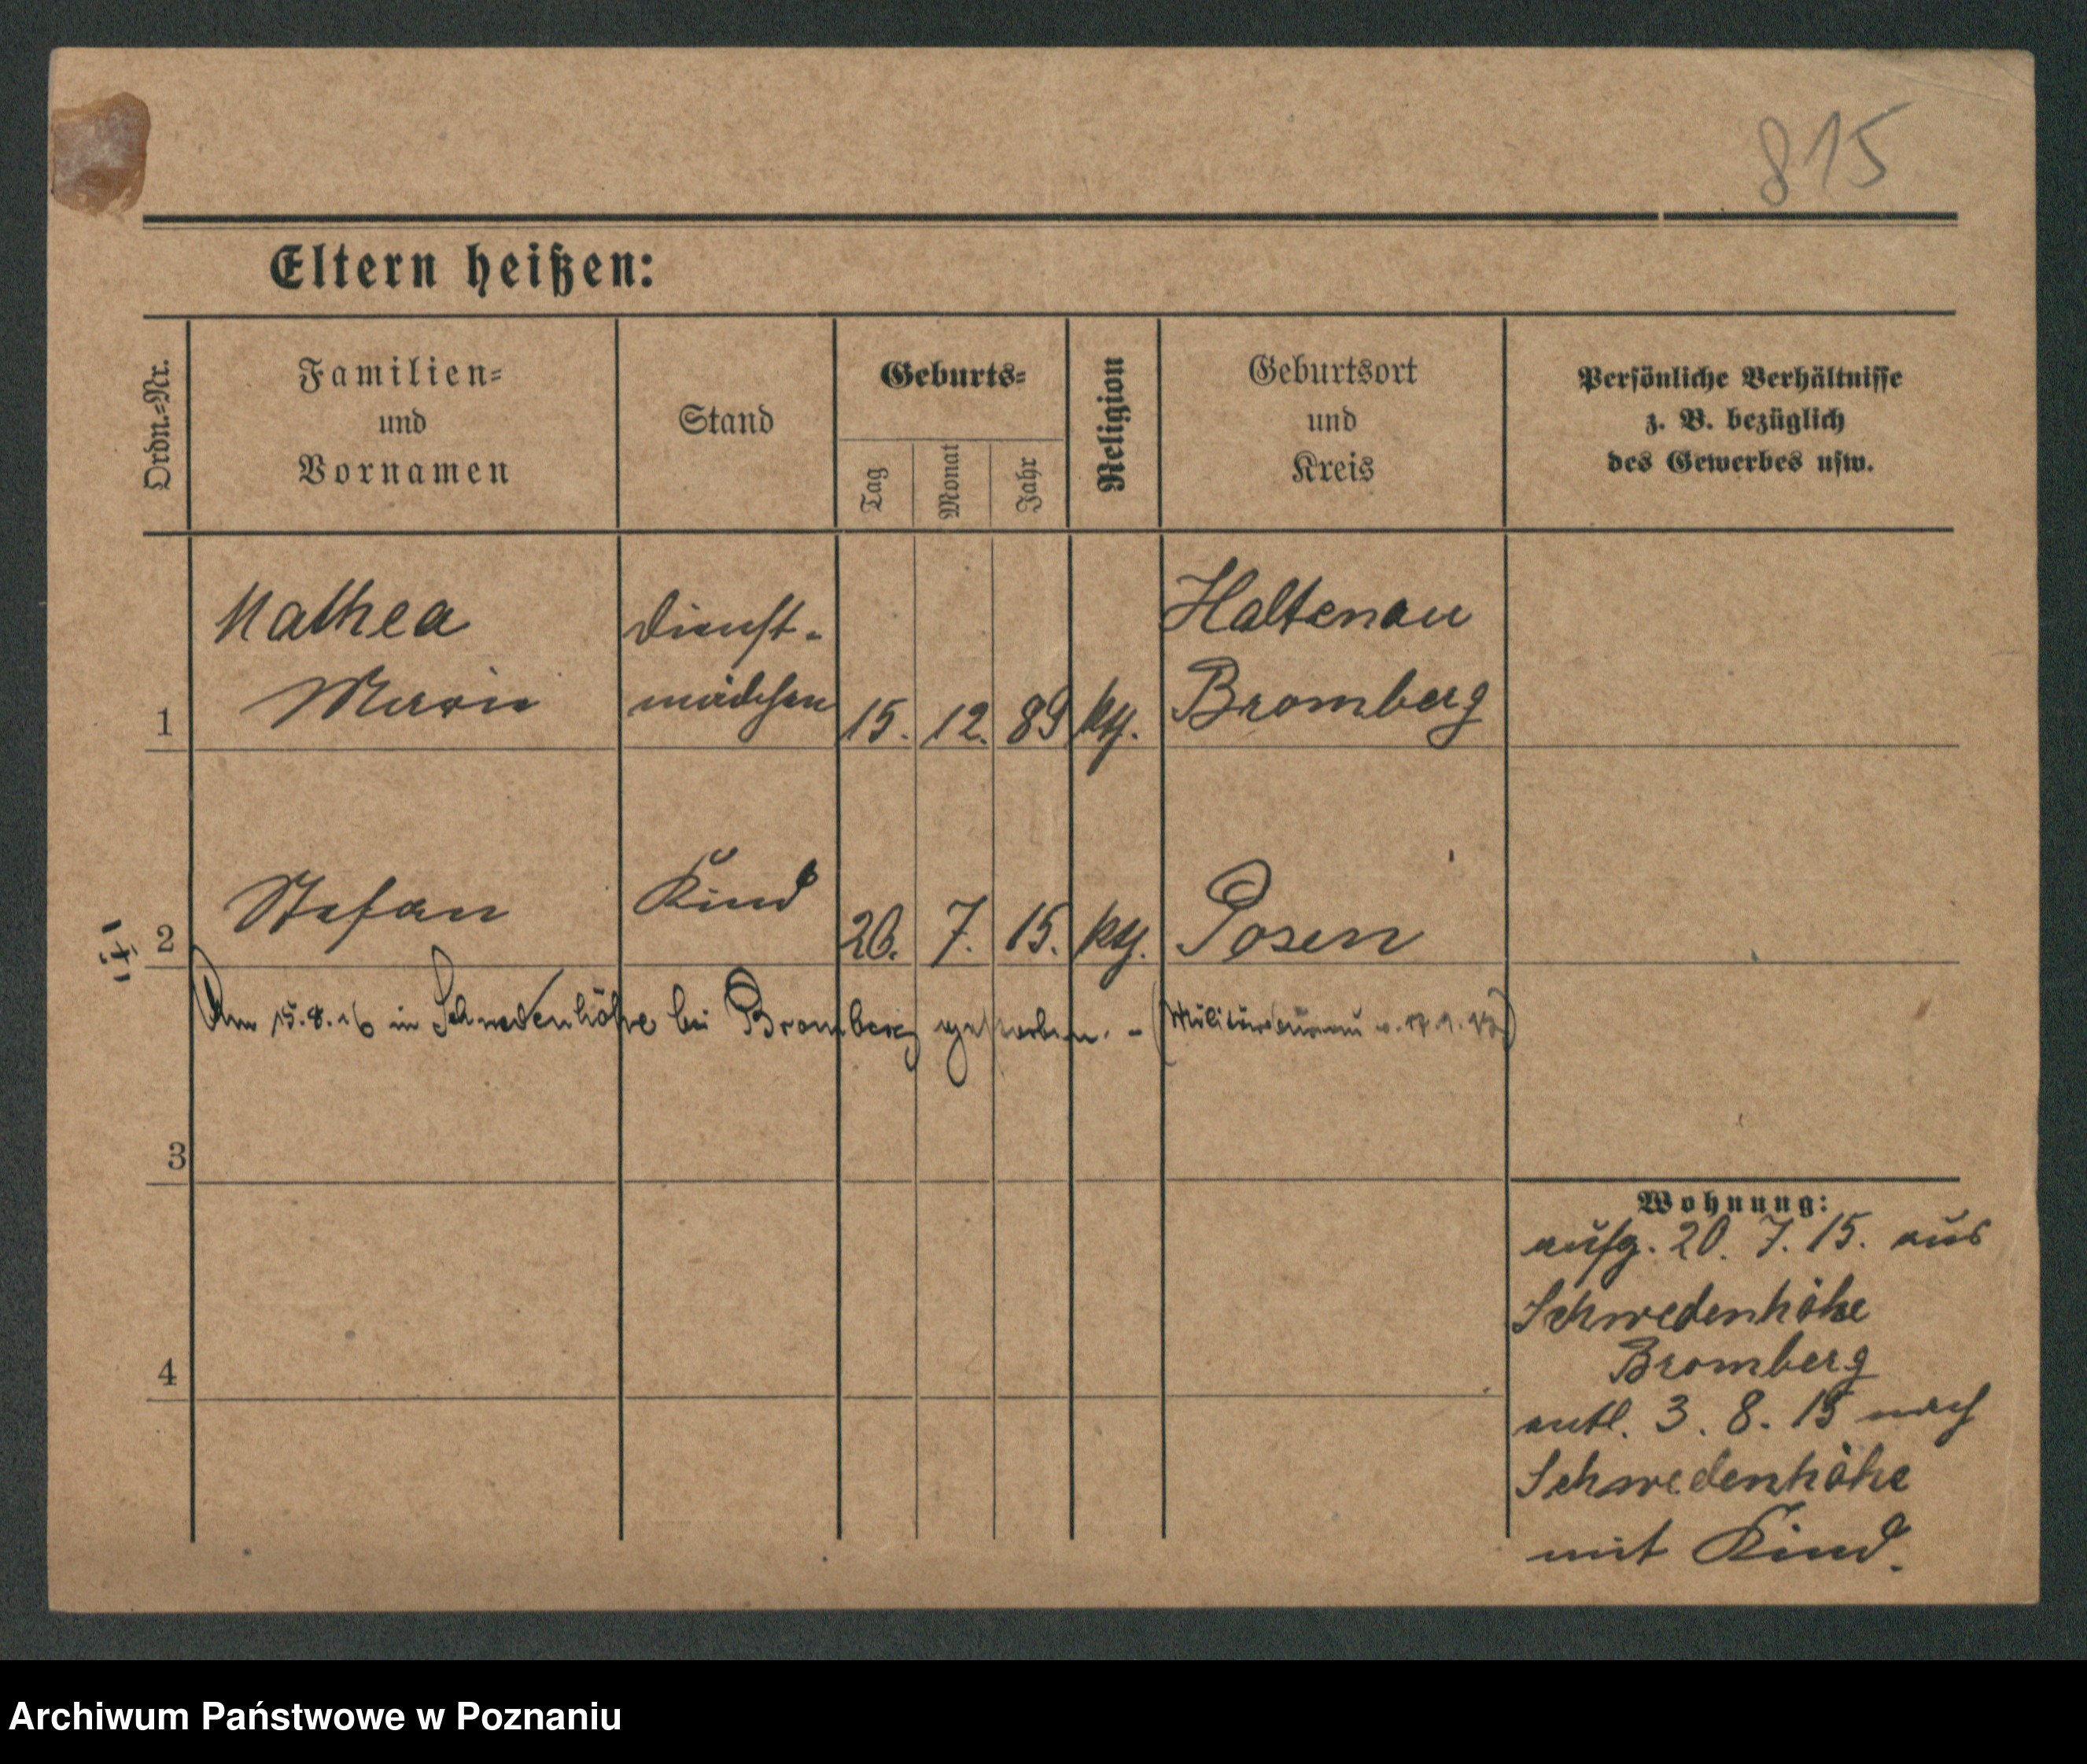 815
Eltern heißen:
Ordn.-Nr.
Familien-
und
Vornamen
Stand
Geburts-
Tag
Monat
Jahr
Religion
Geburtsort
und
Kreis
Persönliche Verhältnisse
z. B. bezüglich
des Gewerbes usw.
1
Mathea
Maria
Dienst-
mädchen
15. 12. 89
kth.
Haltenau
Bromberg
2
Stefan
Kind
20. 7. 15.
kth.
Posen
Am 15.8.16 in Schwedenhöhe bei Bromberg gestorben. –
3
4
Wohnung:
aufg. 20. 7. 15. aus
Schwedenhöhe
Bromberg
entl. 3. 8. 15 nach
Schwedenhöhe
mit Kind.
Archiwum Państwowe w Poznaniu